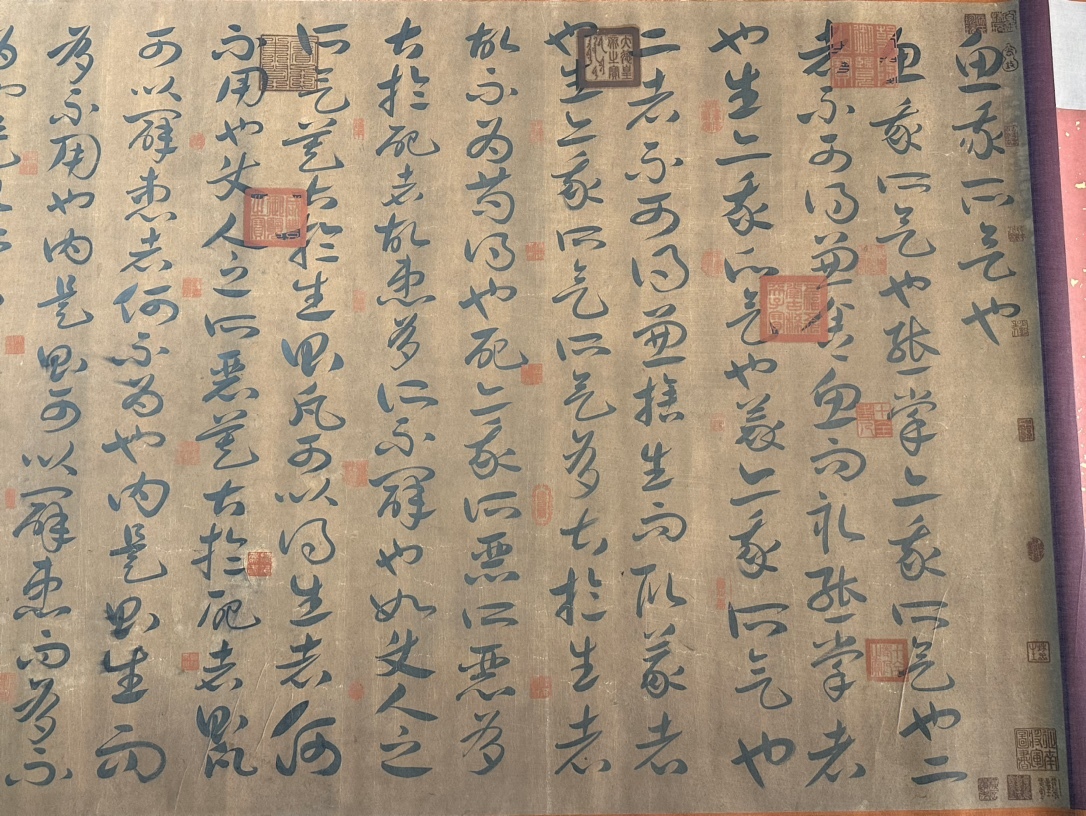 魚我所欲也
魚我所欲也熊掌亦我所欲也二
者不可得兼舍魚而取熊掌者
也生亦我所欲也義亦我所欲也
二者不可得兼捨生而取義者
也生亦我所欲所欲有甚於生者
故不為苟得也死亦我所惡所惡有
甚於死者故患有所不辟也如使人之
所欲莫甚於生則凡可以得生者何
不用也使人之所惡莫甚於死者則凡
可以辟患者何不為也由是則生而
有不用也由是則可以辟患而有不